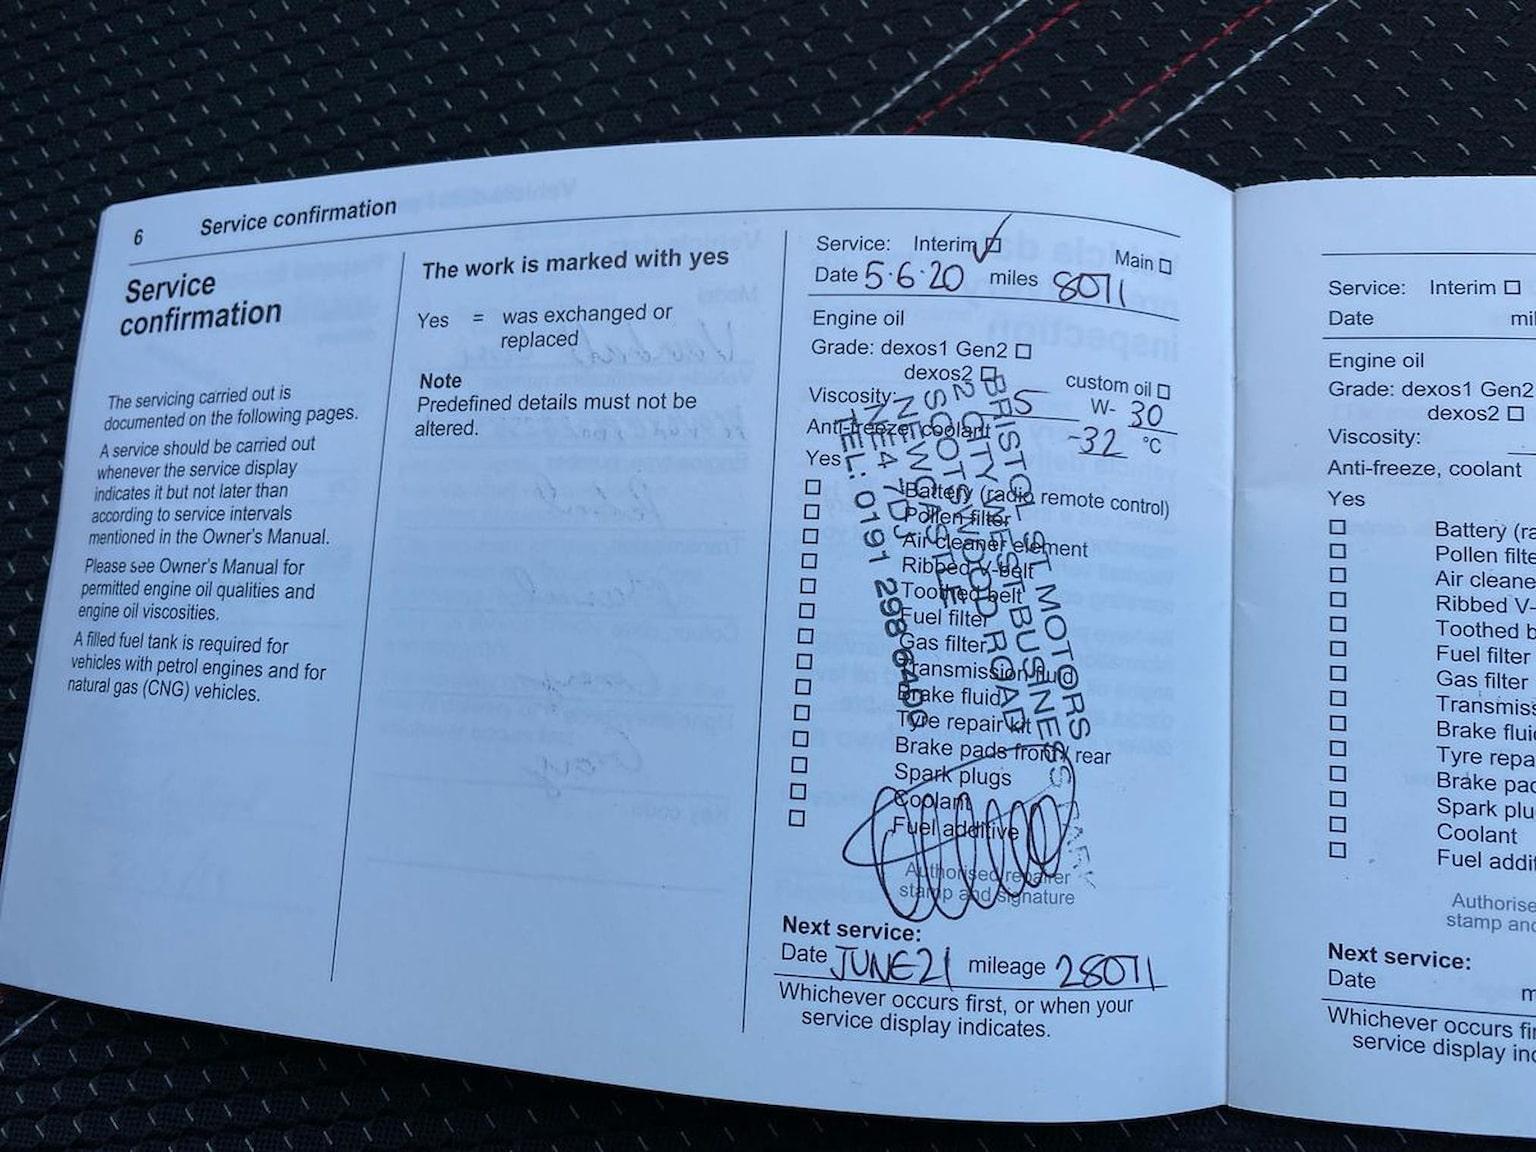 6 Service confirmation
Service
confirmation
The servicing carried out is
documented on the following pages.
A service should be carried out
whenever the service display
indicates it but not later than
according to service intervals
mentioned in the Owner's Manual.
Please see Owner's Manual for
permitted engine oil qualities and
engine oil viscosities.
A filled fuel tank is required for
vehicles with petrol engines and for
natural gas (CNG) vehicles.
The work is marked with yes
Yes = was exchanged or
replaced
Note
Predefined details must not be
altered.
Service: Interim Main
Date 5.6.20 miles 8071
Engine oil
Grade: dexos1 Gen2
dexos2 custom oil
Viscosity: 5 W- 30
Anti-freeze, coolant -32 °C
Yes
Battery (radio remote control)
Pollen filter
Air cleaner element
Ribbed V-belt
Toothed belt
Fuel filter
Gas filter
Transmission fluid
Brake fluid
Tyre repair kit
Brake pads front / rear
Spark plugs
Coolant
Fuel additive
Authorised repairer
stamp and signature
BRISTOL ST MOTORS
2 CITY WEST BUSINESS PARK
SCOTSWOOD ROAD
NEWCASTLE
NE4 7DJ
TEL: 0191 298 6400
Next service:
Date JUNE 21 mileage 28071
Whichever occurs first, or when your
service display indicates.
Service: Interim
Date mil
Engine oil
Grade: dexos1 Gen2
dexos2
Viscosity:
Anti-freeze, coolant
Yes
Battery (ra
Pollen filte
Air cleane
Ribbed V-
Toothed b
Fuel filter
Gas filter
Transmiss
Brake fluid
Tyre repa
Brake pad
Spark plu
Coolant
Fuel addit
Authorise
stamp and
Next service:
Date m
Whichever occurs fir
service display ind